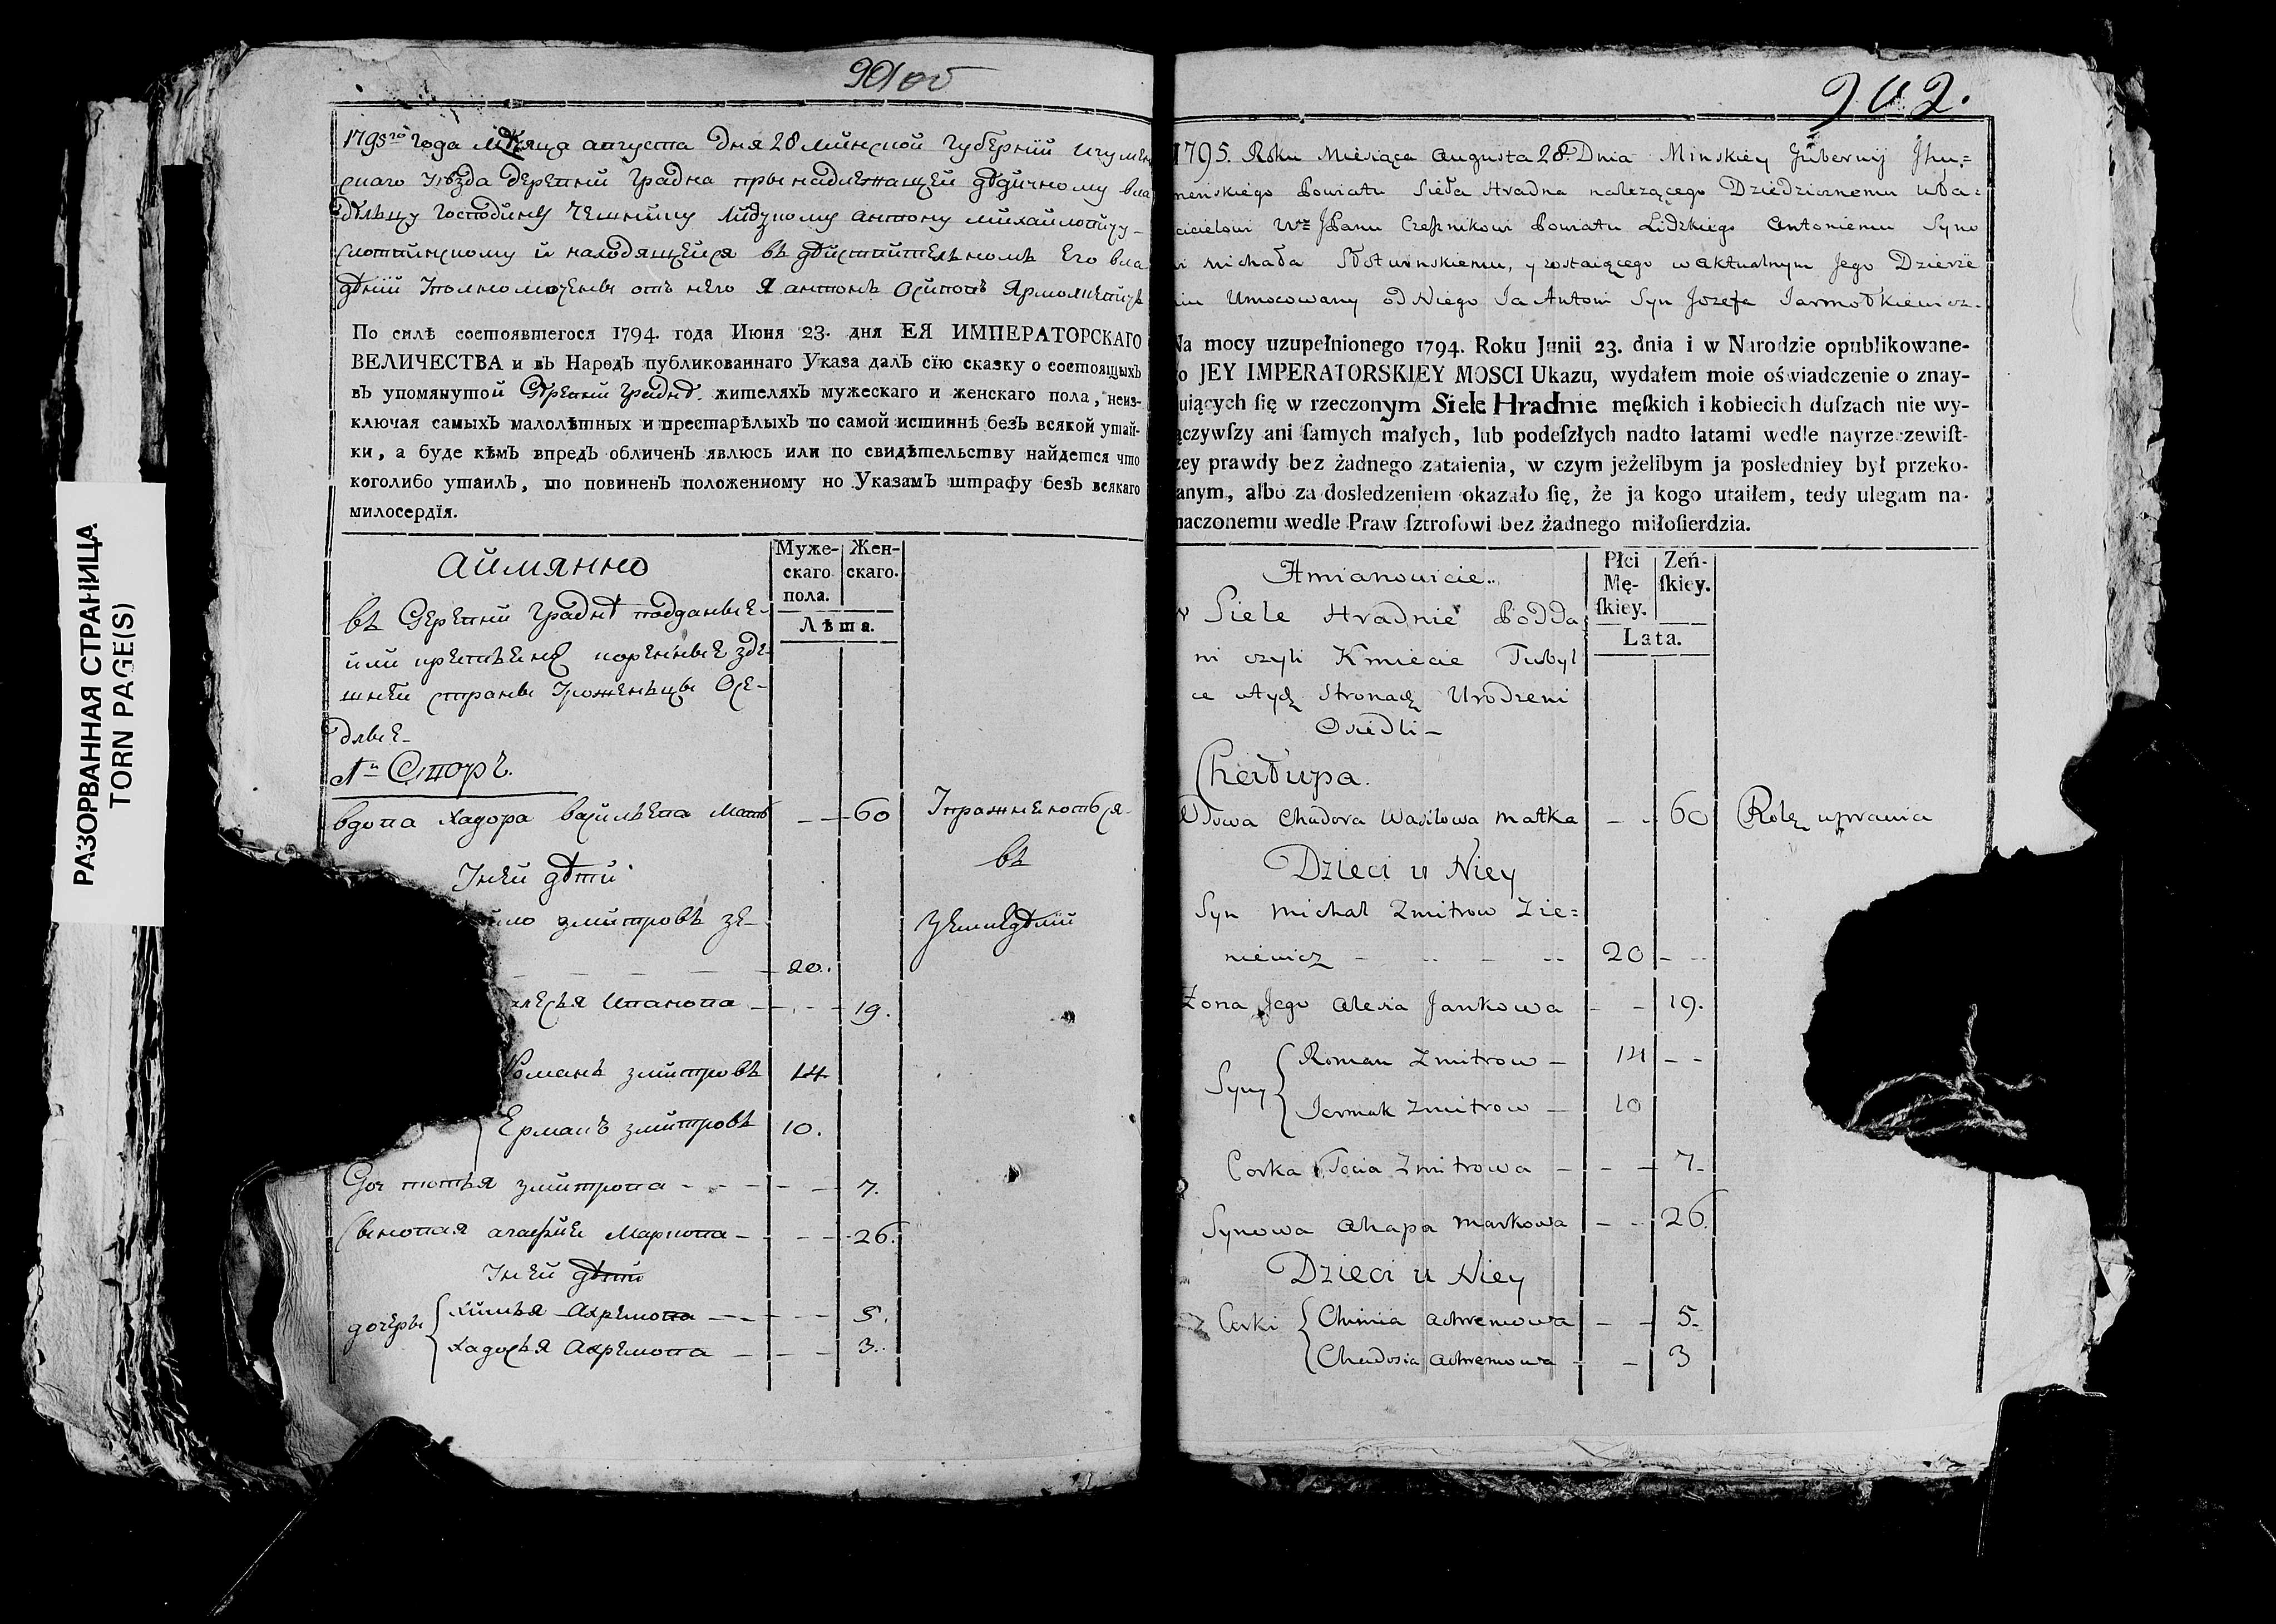 РАЗОРВАННАЯ СТРАНИЦА
TORN PAGE(S)
901 об
1795го Года Мѣсяца августа дня 28 минской Губернiи игумен
скаго уѣзда деревни Градна принадлежащей дѣдичному вла
дѣльцу господину чешнику лидзкому антону михайловичу
слотвинскому и находящейся въ дѣйствительномъ его вла
дѣнiи уполномоченъ отъ него я антонъ осиповъ Ярмолкевичъ
По силѣ состоявшегося 1794. года Июня 23. дня ЕЯ ИМПЕРАТОРСКАГО
ВЕЛИЧЕСТВА и въ Народъ публикованнаго Указа далъ сïю сказку о состоящыхъ
въ упомянутой деревни Граднѣ жителяхъ мужескаго и женскаго пола, неиз-
ключая самыхъ малолѣтныхъ и престарѣлыхъ по самой истиннѣ безъ всякой утай-
ки, а буде кѣмъ впредъ обличенъ явлюсь или по свидѣтельству найдется что
коголибо утаилъ, то повиненъ положенному но Указамъ штрафу безъ всякаго
милосердïя.
аймянно
Муже-
скаго
пола.
Жен-
скаго.
Лѣта.
въ деревни Граднѣ подданые
или крестьяне коренные зде-
шней страны уроженцы осе-
длые
№ Сторъ.
вдова хадора васильева мать — — 60 упражнеются
въ
земледѣлiи
у ней дѣти
йло змитровъ зе-
— — — — 20.
алесья иванова — — — 19.
Романъ змитровъ 14
Ермакъ змитровъ 10.
доч тотья змитрова — — — 7.
сыновая агафия Маркова — — — 26.
у ней дѣти
дочеры { химья ахремова — — — 5.
хадосья ахремова — — — 3.
902.
1795. Roku Miesiąca Augusta 28. Dnia Minskiey Gubernij Jhu=
meńskiego Powiatu Sieła Hradna należącego Dziedzicznemu Wła=
cicielowi Wz JPanu Czesznikowi Powiatu Lidzkiego Antoniemu Syno
i Michała Słotwinskiemu, y zostaiącego w Aktualnym Jego Dzierże
iu Umocowany od Niego Ja Antoni Syn Jozefa Jarmołkiewicz.
Na mocy uzupełnionego 1794. Roku Junii 23. dnia i w Narodzie opublikowane-
o JEY IMPERATORSKIEY MOSCI Ukazu, wydałem moie oświadczenie o znay-
uiących się w rzeczonym Siele Hradnie męſkich i kobiecich duſzach nie wy-
ączywſzy ani ſamych małych, lub podeſzłych nadto latami wedle nayrzeczewiſt-
zey prawdy bez żadnego zataienia, w czym jeżelibym ja posledniey był przeko-
anym, albo za dosledzeniem okazało ſię, że ja kogo utaiłem, tedy ulegam na-
naczonemu wedle Praw ſztrofowi bez żadnego miłoſierdzia.
Amianowicie..
Płci
Mę-
ſkiey.
Żeń-
ſkiey.
Lata.
w Siele Hradnie Podda
ni czyli Kmiecie Tubyl
ce w tych Stronach Urodzeni
Osiedli —
Chałupa.
Wdowa Chadora Wasilowa Matka — — 60 Rolą uprawia
Dzieci u Niey
Syn Michał Zmitrow Zie=
niewicz — — — — 20 — —
Żona Jego Alesia Jankowa — — 19.
Syny { Roman Zmitrow — 14 — —
Jarmak Zmitrow — 10
Corka Tocia Zmitrowa — — — 7.
Synowa Ahapa Markowa — — 26.
Dzieci u Niey
2 Corki { Chimia Achremowa — — 5.
Chadosia Achremowa — — 3